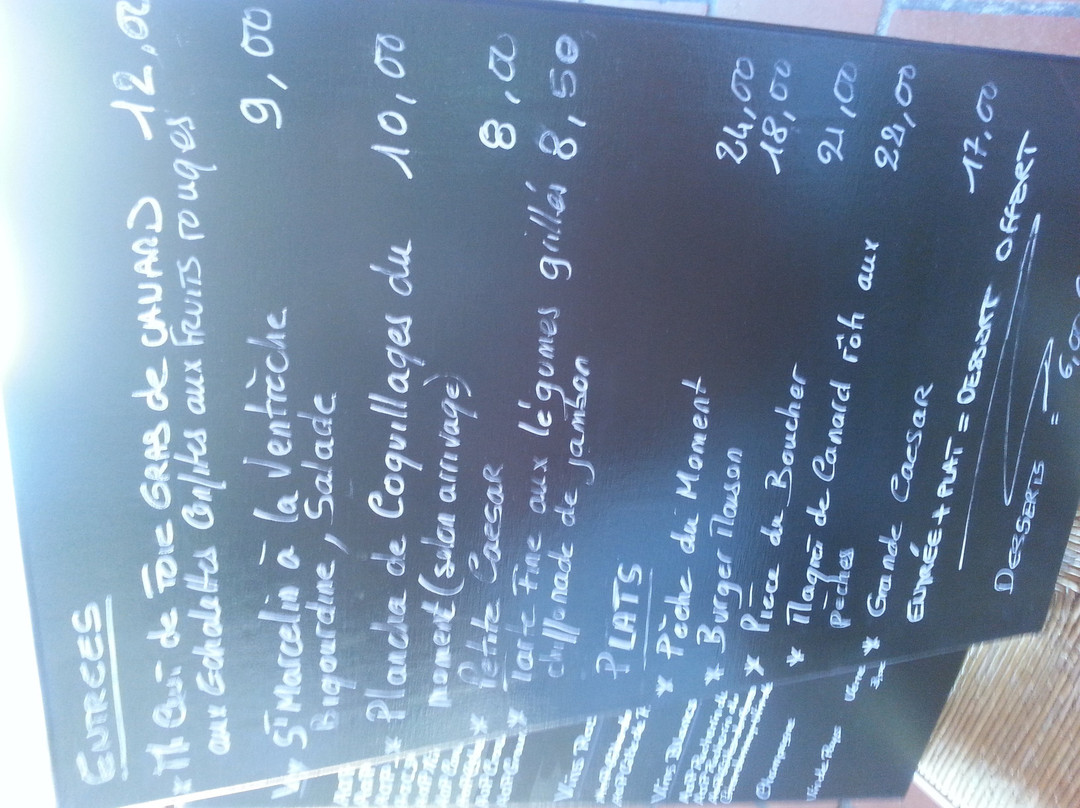 ENTREES
* Mi Cuit de FOIE GRAS de CANARD 12,00
aux Echalottes Confites aux FRUITS rouges
* St Marcelin à la Ventrèche 9,00
Bigourdne, Salade
* Plancha de Coquillages du 10,00
moment (selon arrivage)
* Petite Caesar 8,00
* Tarte Fine aux légumes grillés 8,50
chiffonade de jambon
PLATS
* Pêche du Moment 24,00
* Burger Maison 18,00
* Pièce du Boucher 21,00
* Magret de Canard rôti aux 22,00
pêches
* Grande Caesar 17,00
ENTRÉE + PLAT = DESSERT OFFERT
DESSERTS = 6,00
Vins Blancs
Champagne